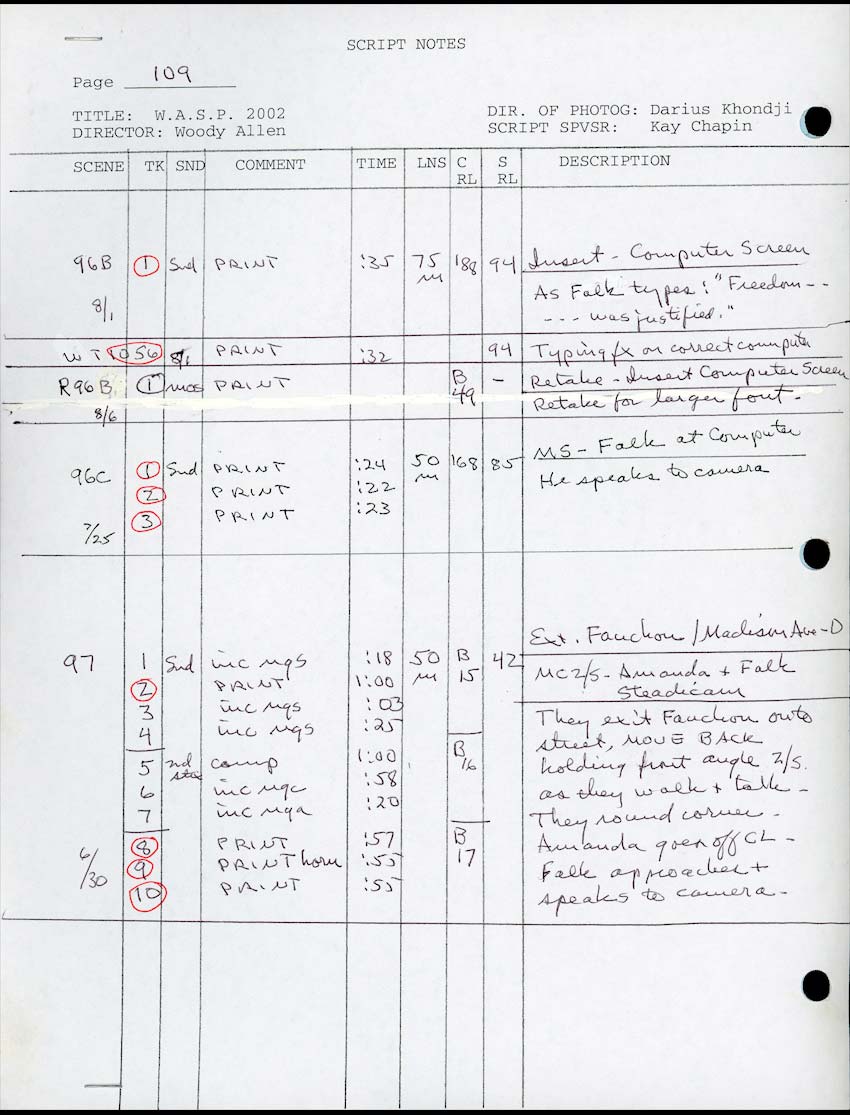 SCRIPT NOTES
Page 109
TITLE: W.A.S.P. 2002 DIR. OF PHOTOG: Darius Khondji
DIRECTOR: Woody Allen SCRIPT SPVSR: Kay Chapin
SCENE TK SND COMMENT TIME LNS C RL S RL DESCRIPTION
96B 1 Snd PRINT :35 75 m 188 94 Insert - Computer Screen
As Falk types: "Freedom - -
8/1 - - - was justified."
WT 1056 8/1 PRINT :32 94 Typing fx on correct computer
R96B 1 mos PRINT B 49 - Retake - Insert Computer Screen
8/6 Retake for larger font.
MS - Falk at Computer
96C 1 Snd PRINT :24 50 m 168 85 He speaks to camera
2 PRINT :22
7/25 3 PRINT :23
Ext. Fauchon / Madison Ave - D
97 1 Snd inc ngs :18 50 m B 15 42 MC2/S - Amanda + Falk
2 PRINT 1:00 Steadicam
3 inc ngs :03 They exit Fauchon onto
4 inc ngs :25 street, MOVE BACK
5 2nd comp 1:00 B 16 holding front angle 2/S.
6 inc ngc :58 as they walk + talk -
7 inc nga :20 They round corner -
8 PRINT :57 B 17 Amanda goes off CL -
6/30 9 PRINT horn :55 Falk approaches +
10 PRINT :55 speaks to camera -